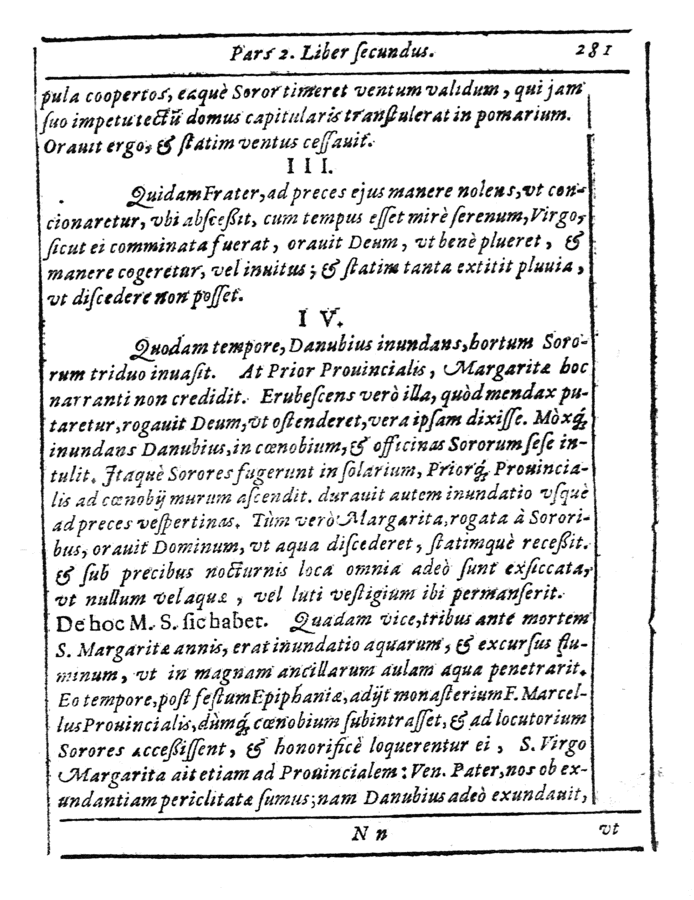 Pars 2. Liber ſecundus. 281
pula coopertos, eaquè Soror timeret ventum validum, qui jam
ſuo impetu tectũ domus capitularis tranſtulerat in pomarium.
Orauit ergo, & ſtatim ventus ceſſauit.
III.
Quidam Frater, ad preces ejus manere nolens, vt con-
cionaretur, vbi abſceßit, cum tempus eſſet mirè ſerenum, Virgo,
ſicut ei comminata fuerat, orauit Deum, vt benè plueret, &
manere cogeretur, vel inuitus; & ſtatim tanta extitit pluuia,
vt diſcedere non poſſet.
IV.
Quodam tempore, Danubius inundans, hortum Soro-
rum triduo inuaſit. At Prior Prouincialis, Margaritæ hoc
narranti non credidit. Erubeſcens verò illa, quòd mendax pu-
taretur, rogauit Deum, vt oſtenderet, vera ipſam dixiſſe. Mòxq́;
inundans Danubius, in cœnobium, & officinas Sororum ſeſe in-
tulit. Itaquè Sorores fugerunt in ſolarium, Priorq́; Prouincia-
lis ad cœnobij murum aſcendit. durauit autem inundatio vſquè
ad preces veſpertinas. Tùm verò Margarita, rogata à Sorori-
bus, orauit Dominum, vt aqua diſcederet, ſtatimquè receßit.
& ſub precibus nocturnis loca omnia adeò ſunt exſiccata,
vt nullum vel aquæ, vel luti veſtigium ibi permanſerit.
De hoc M. S. ſic habet. Quadam vice, tribus ante mortem
S. Margaritæ annis, erat inundatio aquarum, & excurſus flu-
minum, vt in magnam ancillarum aulam aqua penetrarit.
Eo tempore, poſt feſtum Epiphaniæ, adijt monaſterium F. Marcel-
lus Prouincialis, dùmq́; cœnobium ſubintraſſet, & ad locutorium
Sorores acceßiſſent, & honorificè loquerentur ei, S. Virgo
Margarita ait etiam ad Prouincialem: Ven. Pater, nos ob ex-
undantiam periclitatæ ſumus; nam Danubius adeò exundauit,
N n vt